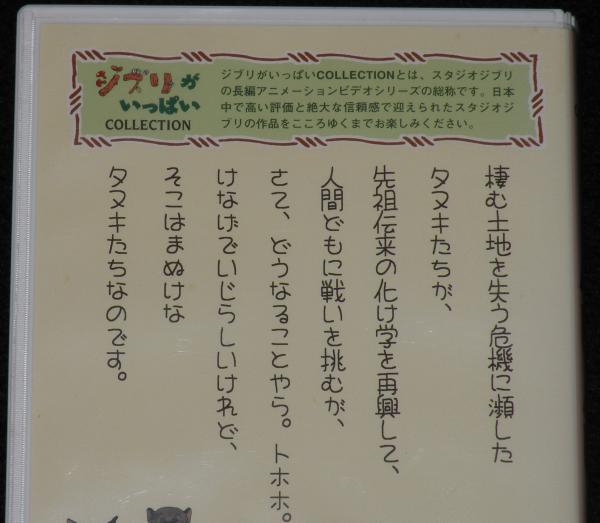 ジブリが
いっぱい
COLLECTION
ジブリがいっぱいCOLLECTIONとは、スタジオジブリ
の長編アニメーションビデオシリーズの総称です。日本
中で高い評価と絶大な信頼感で迎えられたスタジオジ
ブリの作品をこころゆくまでお楽しみください。
棲む土地を失う危機に瀕した
タヌキたちが、
先祖伝来の化け学を再興して、
人間どもに戦いを挑むが、
さて、どうなることやら。トホホ。
けなげでいじらしいけれど、
そこはまぬけな
タヌキたちなのです。